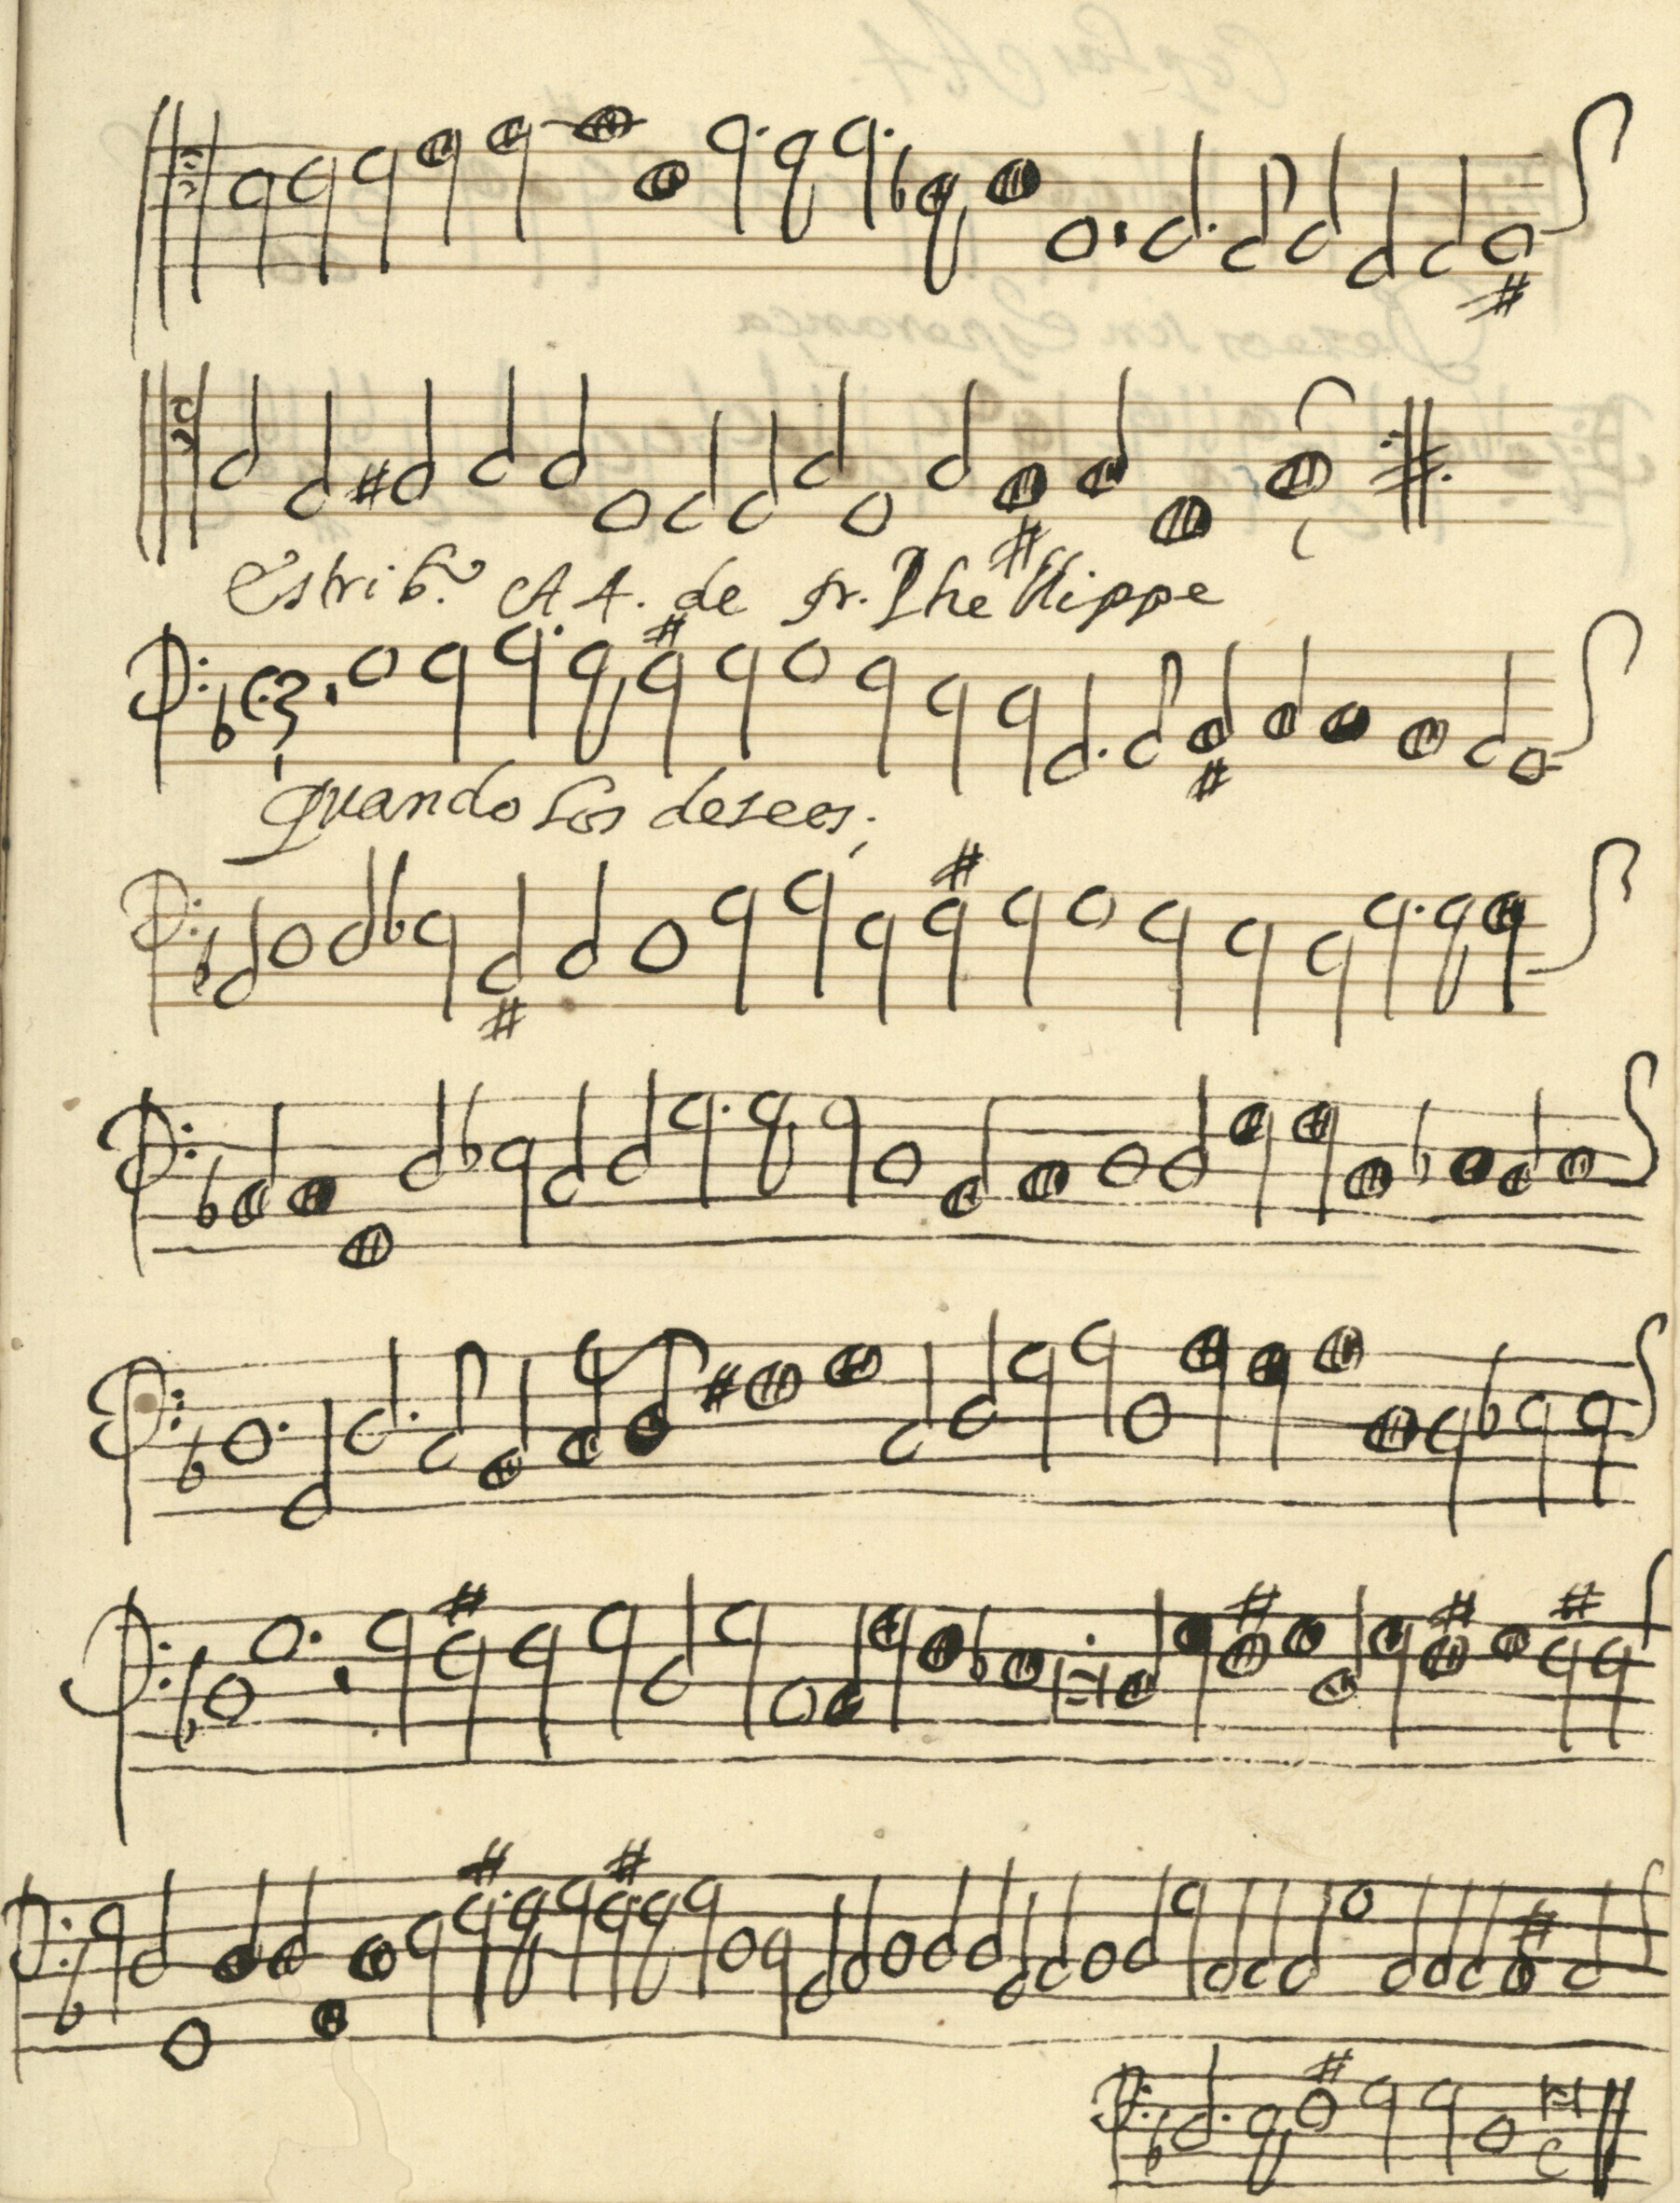 Estribº. A 4. de fr. Phellippe
quando los deseos;